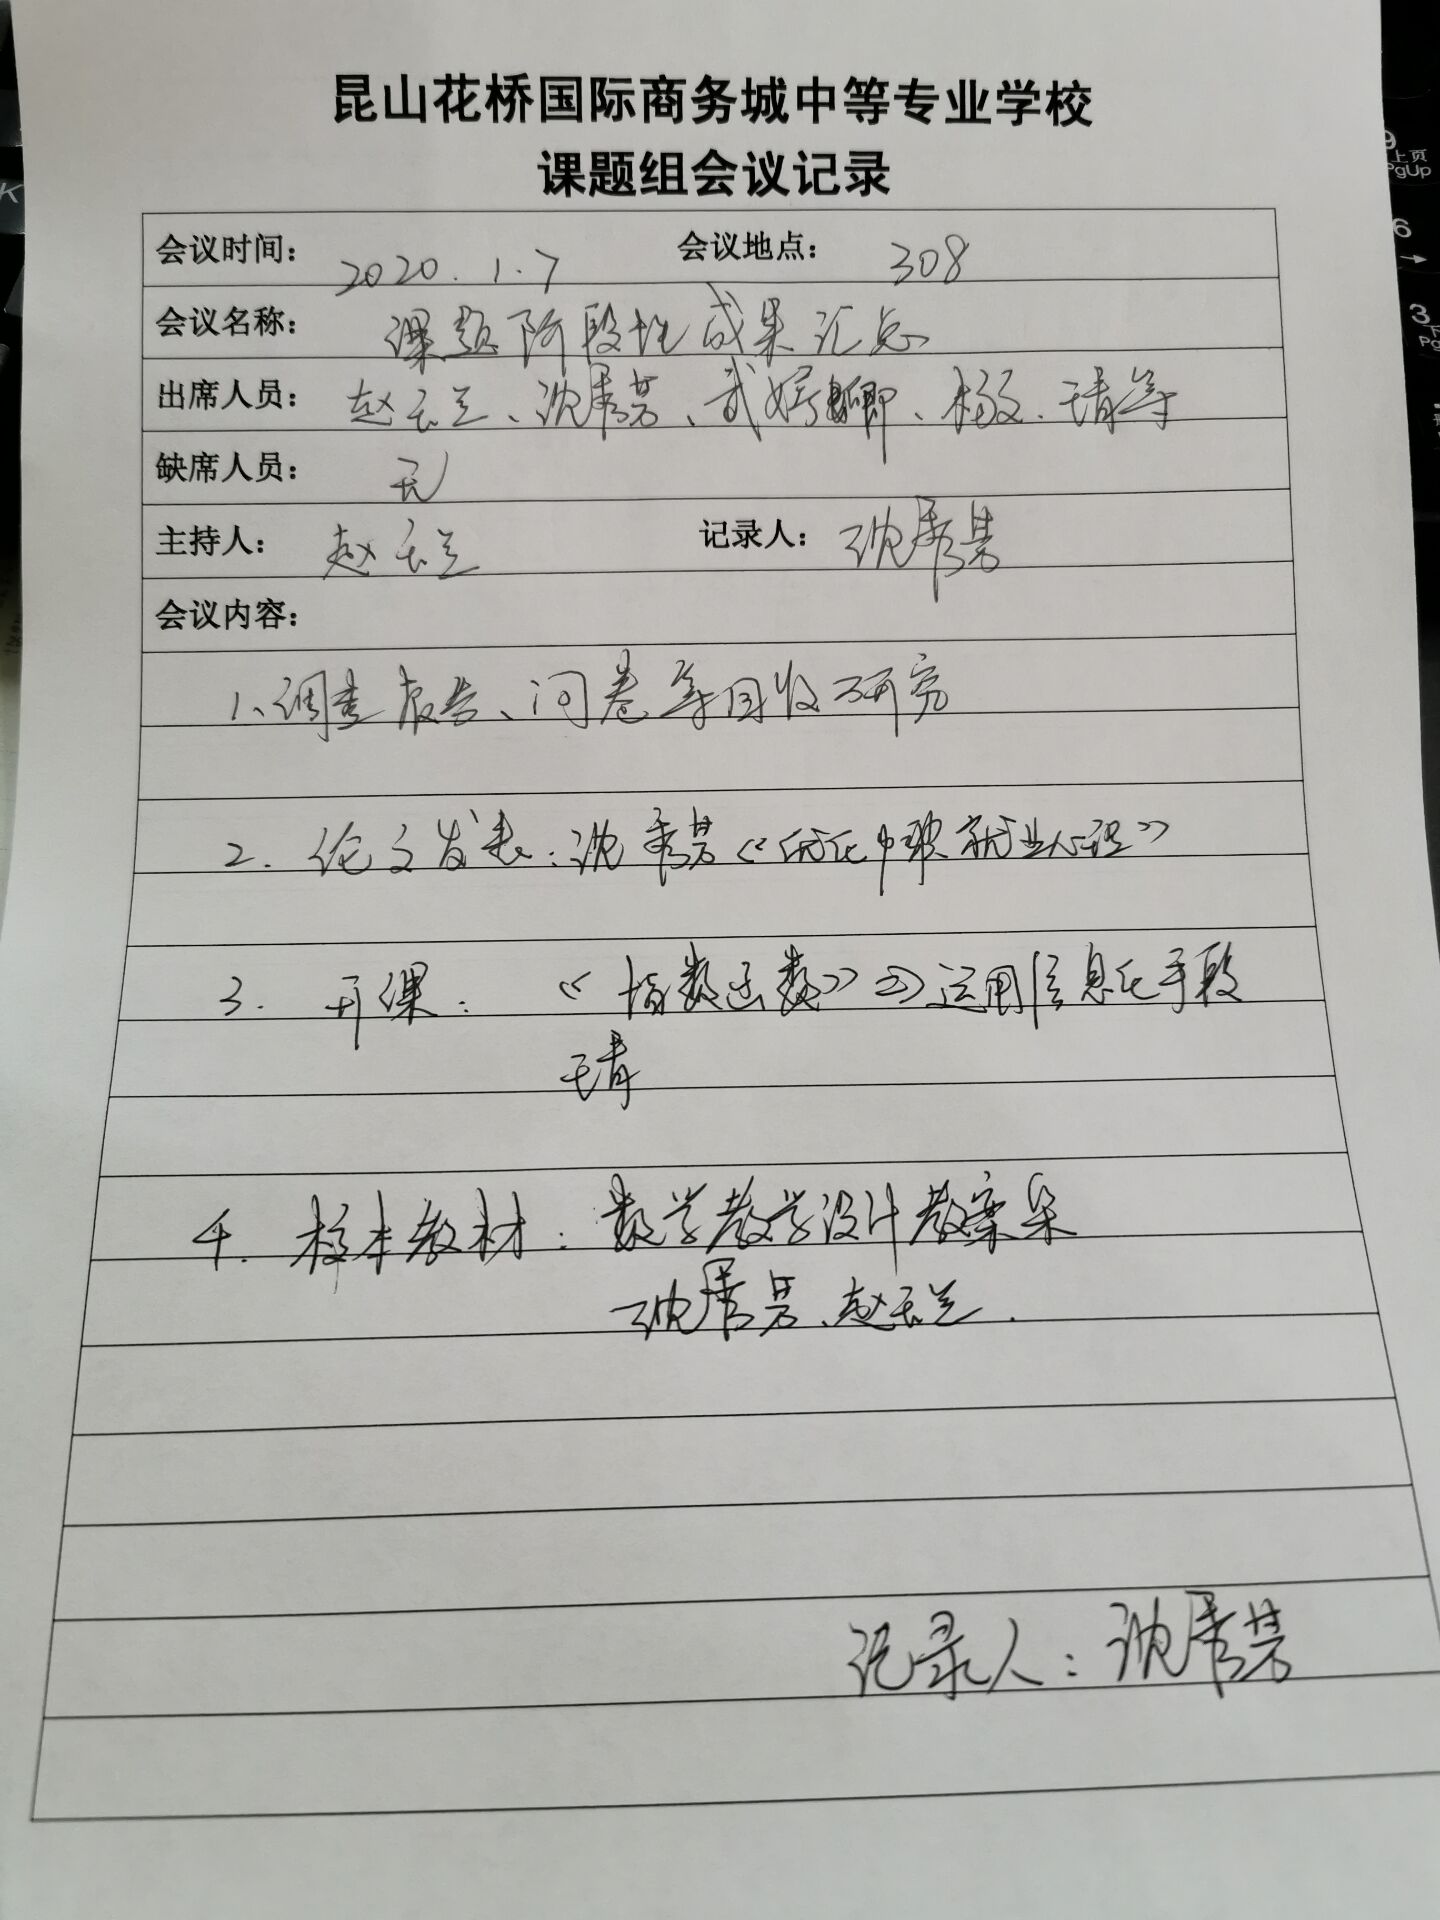 昆山花桥国际商务城中等专业学校
课题组会议记录
会议时间： 2020.1.7 会议地点： 308
会议名称： 课题阶段性成果汇总
出席人员： 赵玉兰、沈秀芳、武婷卿、杨文、王青等
缺席人员： 无
主持人： 赵玉兰 记录人： 沈秀芳
会议内容：
1、调查报告、问卷等回收研究
2. 论文发表：沈秀芳《优化中职就业心理》
3. 开课： 《指数函数》⇒运用信息化手段
王青
4. 校本教材：数学教学设计教案集
沈秀芳、赵玉兰.
记录人：沈秀芳
9
上页
PgUp
6
→
3
K